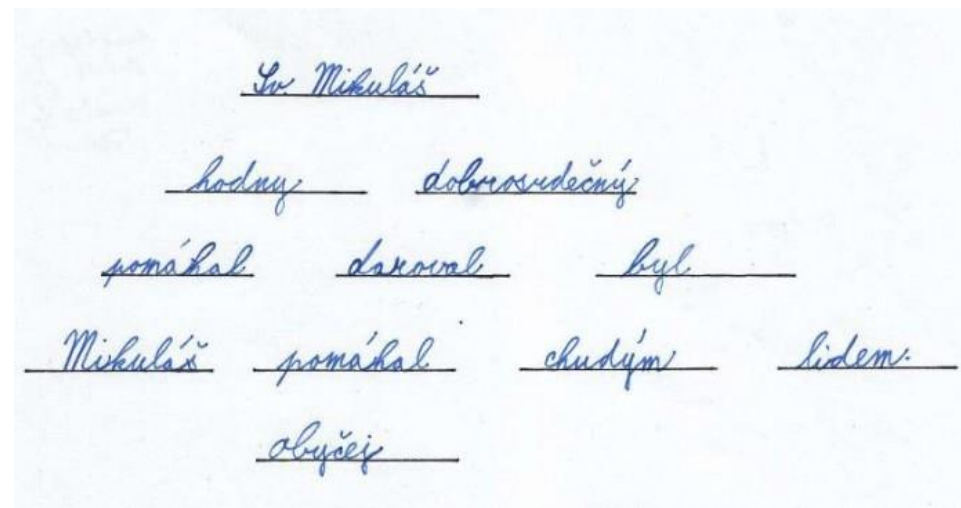 Sv. Mikuláš
hodny dobrosrdečný
pomáhal daroval byl
Mikuláš pomáhal chudým lidem.
obyčej